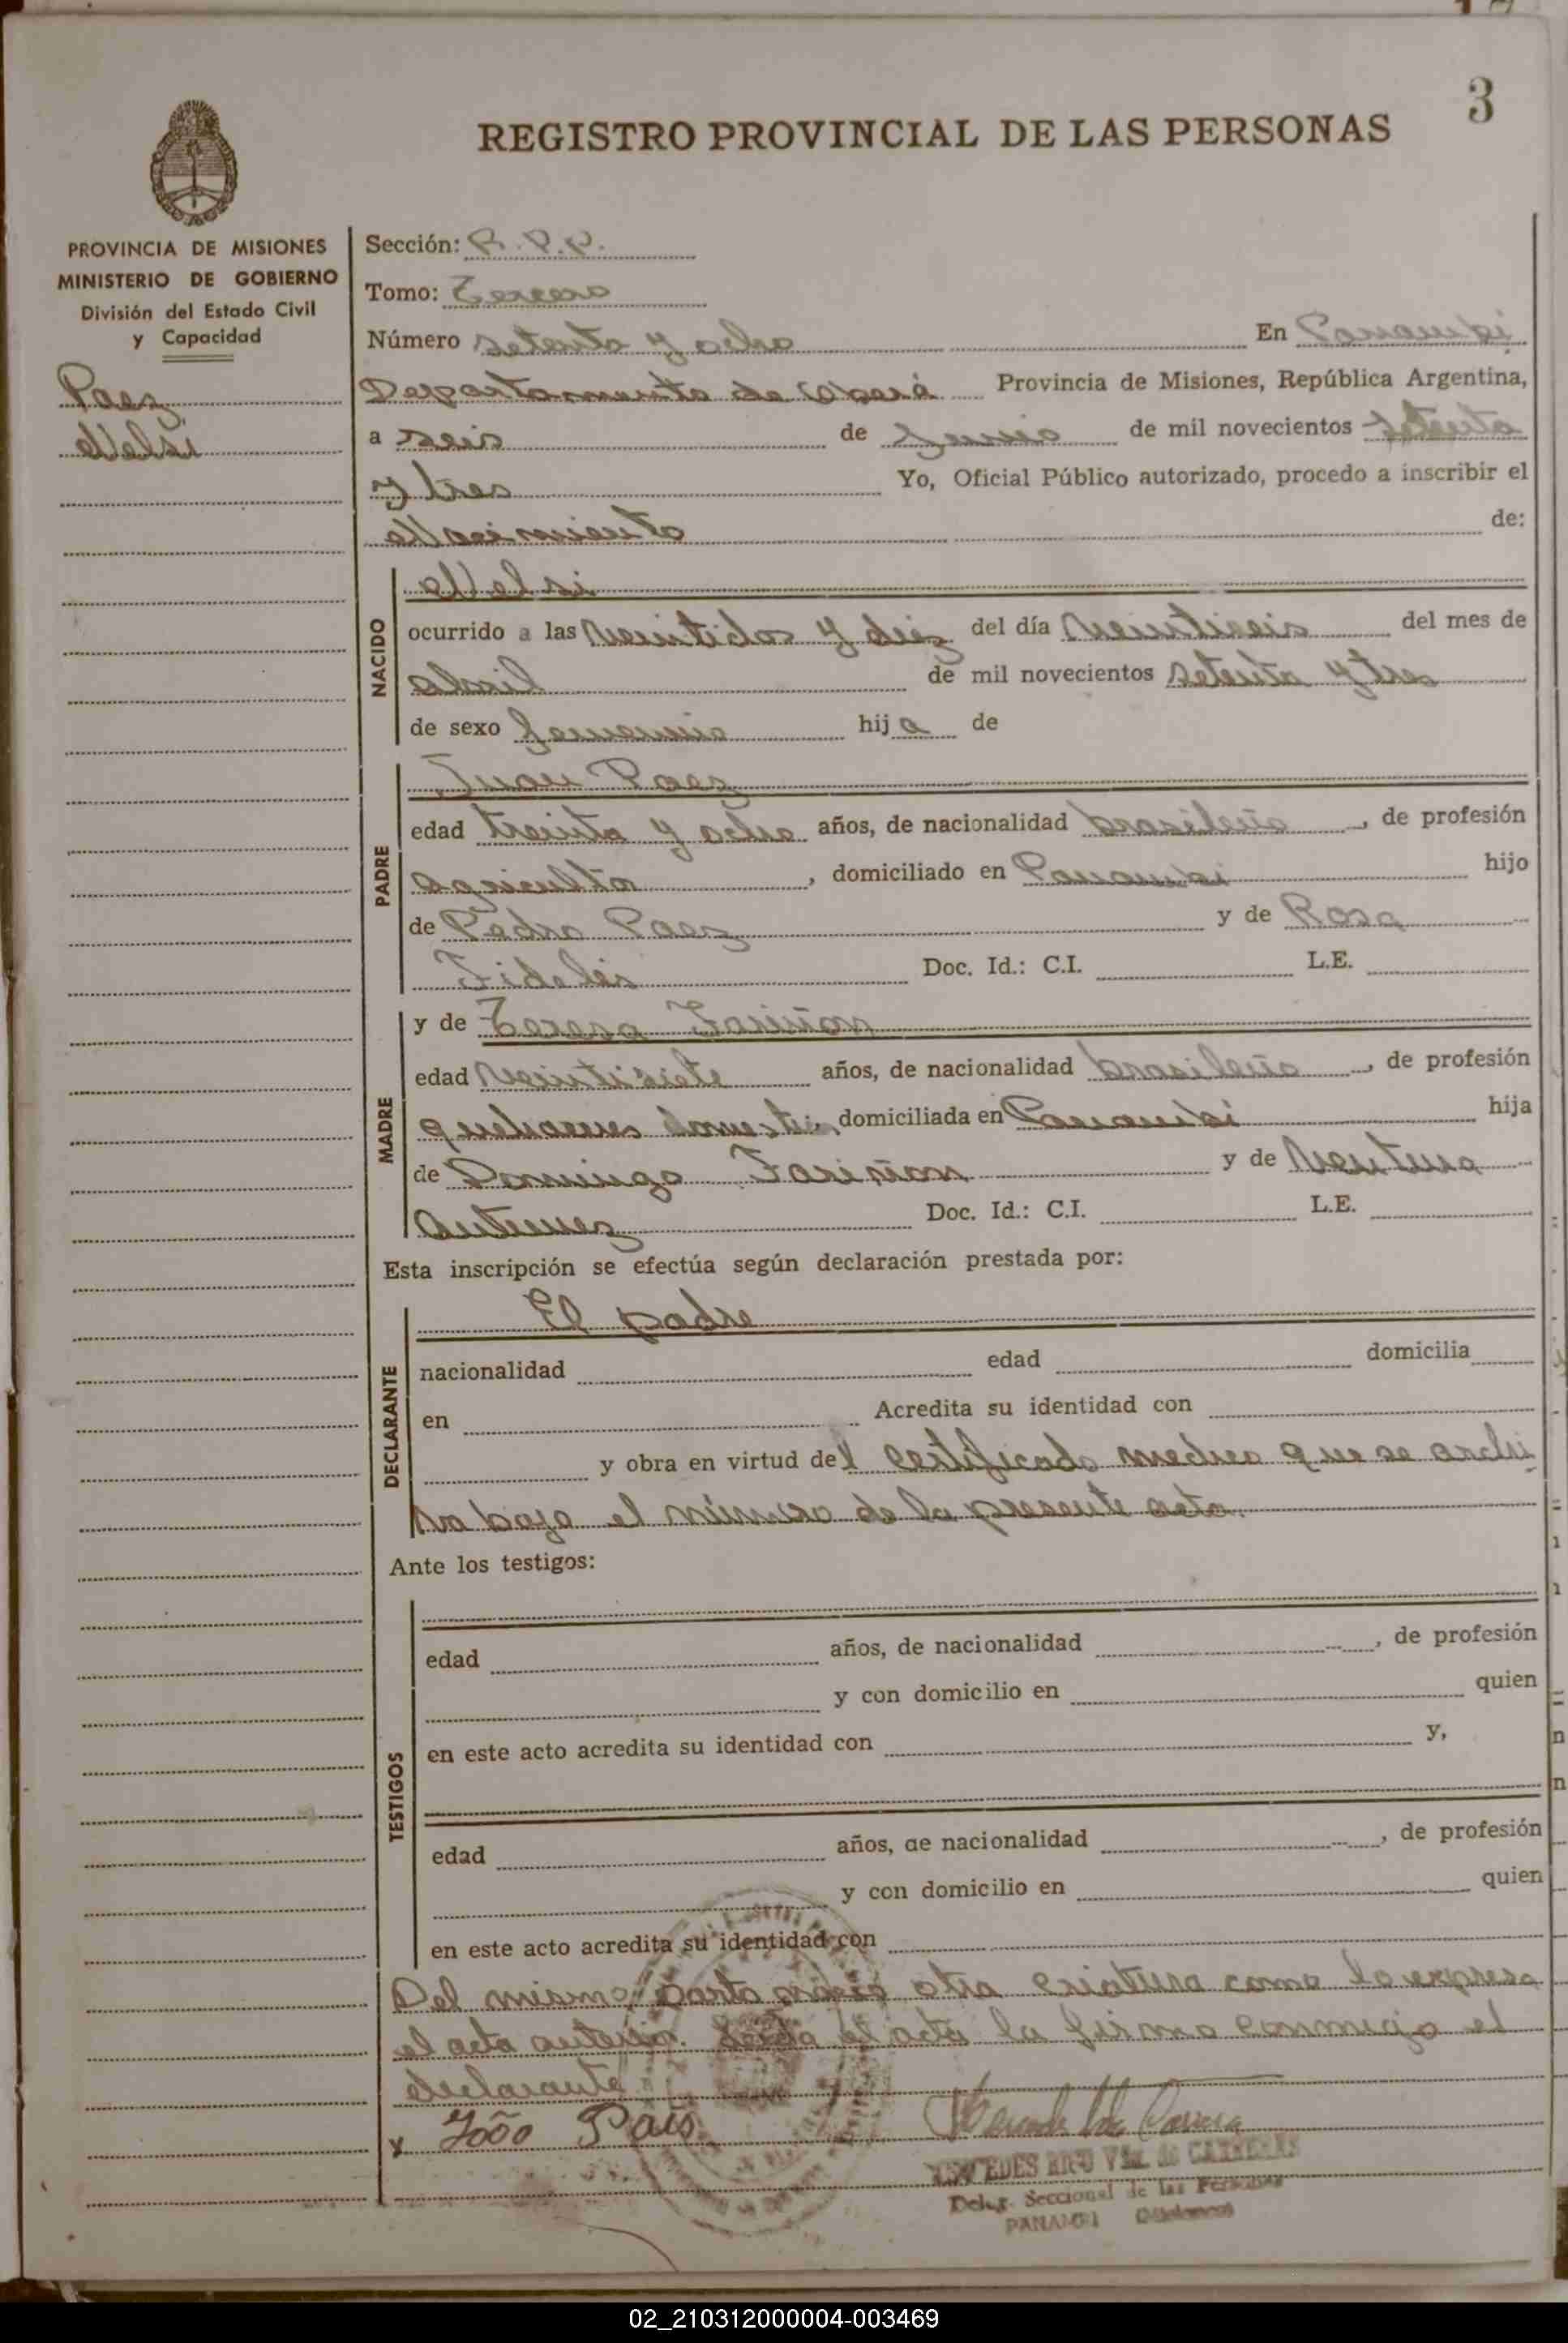 3
REGISTRO PROVINCIAL DE LAS PERSONAS
PROVINCIA DE MISIONES
MINISTERIO DE GOBIERNO
División del Estado Civil
y Capacidad
Paez
Nelsi
Sección: R.P.P.
Tomo: Tercero
Número setenta y ocho En Panambi
Departamento de Oberá Provincia de Misiones, República Argentina,
a seis de Junio de mil novecientos setenta
y tres Yo, Oficial Público autorizado, procedo a inscribir el
Nacimiento de:
NACIDO
Nelsi
ocurrido a las veintidos y diez del día veintiseis del mes de
abril de mil novecientos setenta y tres
de sexo femenino hija de
PADRE
Juan Paez
edad treinta y ocho años, de nacionalidad brasileña, de profesión
agricultor, domiciliado en Panambi hijo
de Pedro Paez y de Rosa
Fidelis Doc. Id.: C.I. L.E.
MADRE
y de Teresa Fariñon
edad veintisiete años, de nacionalidad brasileña, de profesión
quehaceres domestic. domiciliada en Panambi hija
de Domingo Fariñon y de Ventura
Antunez Doc. Id.: C.I. L.E.
Esta inscripción se efectúa según declaración prestada por:
DECLARANTE
El padre
nacionalidad edad domicilia
en Acredita su identidad con
y obra en virtud del certificado medico que se archi
va bajo el número de la presente acta.
Ante los testigos:
TESTIGOS
edad años, de nacionalidad , de profesión
y con domicilio en quien
en este acto acredita su identidad con y,
edad años, de nacionalidad , de profesión
y con domicilio en quien
en este acto acredita su identidad con
Del mismo parto nació otra criatura como lo expresa
el acta anterior. Leida el acta la firma conmigo el
declarante
x João Pais
Deleg. Seccional de las Personas
PANAMBI (Misiones)
02_210312000004-003469